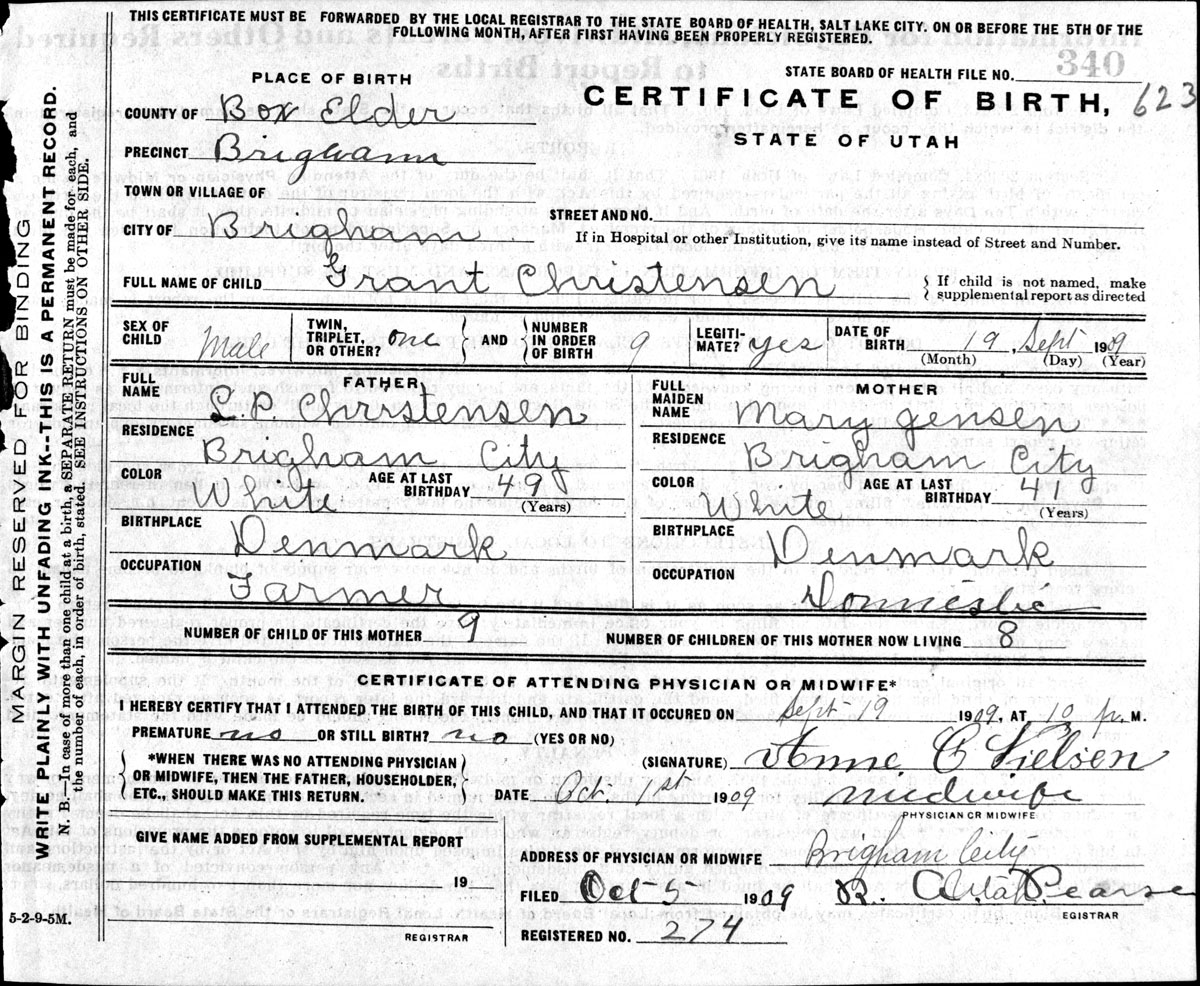 THIS CERTIFICATE MUST BE FORWARDED BY THE LOCAL REGISTRAR TO THE STATE BOARD OF HEALTH, SALT LAKE CITY. ON OR BEFORE THE 5TH OF THE
FOLLOWING MONTH, AFTER FIRST HAVING BEEN PROPERLY REGISTERED.
PLACE OF BIRTH
STATE BOARD OF HEALTH FILE NO. 340
COUNTY OF Box Elder
CERTIFICATE OF BIRTH, 623
PRECINCT Brigham
STATE OF UTAH
TOWN OR VILLAGE OF
CITY OF Brigham
STREET AND NO.
If in Hospital or other Institution, give its name instead of Street and Number.
FULL NAME OF CHILD Grant Christensen { If child is not named, make
supplemental report as directed
SEX OF CHILD Male
TWIN, TRIPLET, OR OTHER? one
AND NUMBER IN ORDER OF BIRTH 9
LEGITIMATE? yes
DATE OF BIRTH 19, Sept 1909
(Month) (Day) (Year)
FATHER
FULL NAME C. P. Christensen
RESIDENCE Brigham City
COLOR White AGE AT LAST BIRTHDAY 49 (Years)
BIRTHPLACE Denmark
OCCUPATION Farmer
MOTHER
FULL MAIDEN NAME Mary Jensen
RESIDENCE Brigham City
COLOR White AGE AT LAST BIRTHDAY 41 (Years)
BIRTHPLACE Denmark
OCCUPATION Domestic
NUMBER OF CHILD OF THIS MOTHER 9 NUMBER OF CHILDREN OF THIS MOTHER NOW LIVING 8
CERTIFICATE OF ATTENDING PHYSICIAN OR MIDWIFE*
I HEREBY CERTIFY THAT I ATTENDED THE BIRTH OF THIS CHILD, AND THAT IT OCCURED ON Sept 19 1909, AT 10 p. M.
PREMATURE no OR STILL BIRTH? no (YES OR NO)
*WHEN THERE WAS NO ATTENDING PHYSICIAN
OR MIDWIFE, THEN THE FATHER, HOUSEHOLDER,
ETC., SHOULD MAKE THIS RETURN.
(SIGNATURE) Anne C
DATE Oct. 1st 1909 midwife
PHYSICIAN OR MIDWIFE
GIVE NAME ADDED FROM SUPPLEMENTAL REPORT
19
REGISTRAR
ADDRESS OF PHYSICIAN OR MIDWIFE Brigham City
FILED Oct 5 1909 Pearse
REGISTRAR
REGISTERED NO. 274
5-2-9-5M.
MARGIN RESERVED FOR BINDING
WRITE PLAINLY WITH UNFADING INK--THIS IS A PERMANENT RECORD.
N. B.—In case of more than one child at a birth, a SEPARATE RETURN must be made for each, and
the number of each, in order of birth, stated. SEE INSTRUCTIONS ON OTHER SIDE.